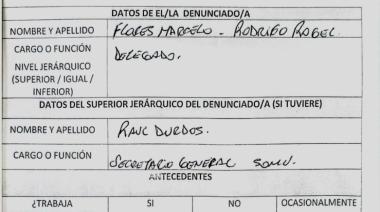 DATOS DEL/LA DENUNCIADO/A
NOMBRE Y APELLIDO FLORES MARCELO - RODRIGO ROBEL
CARGO O FUNCIÓN DELEGADO.
NIVEL JERÁRQUICO
(SUPERIOR / IGUAL /
INFERIOR)
DATOS DEL SUPERIOR JERÁRQUICO DEL DENUNCIADO/A (SI TUVIERE)
NOMBRE Y APELLIDO RAUL DURDOS.
CARGO O FUNCIÓN SECRETARIO GENERAL SOMU.
ANTECEDENTES
¿TRABAJA SI NO OCASIONALMENTE